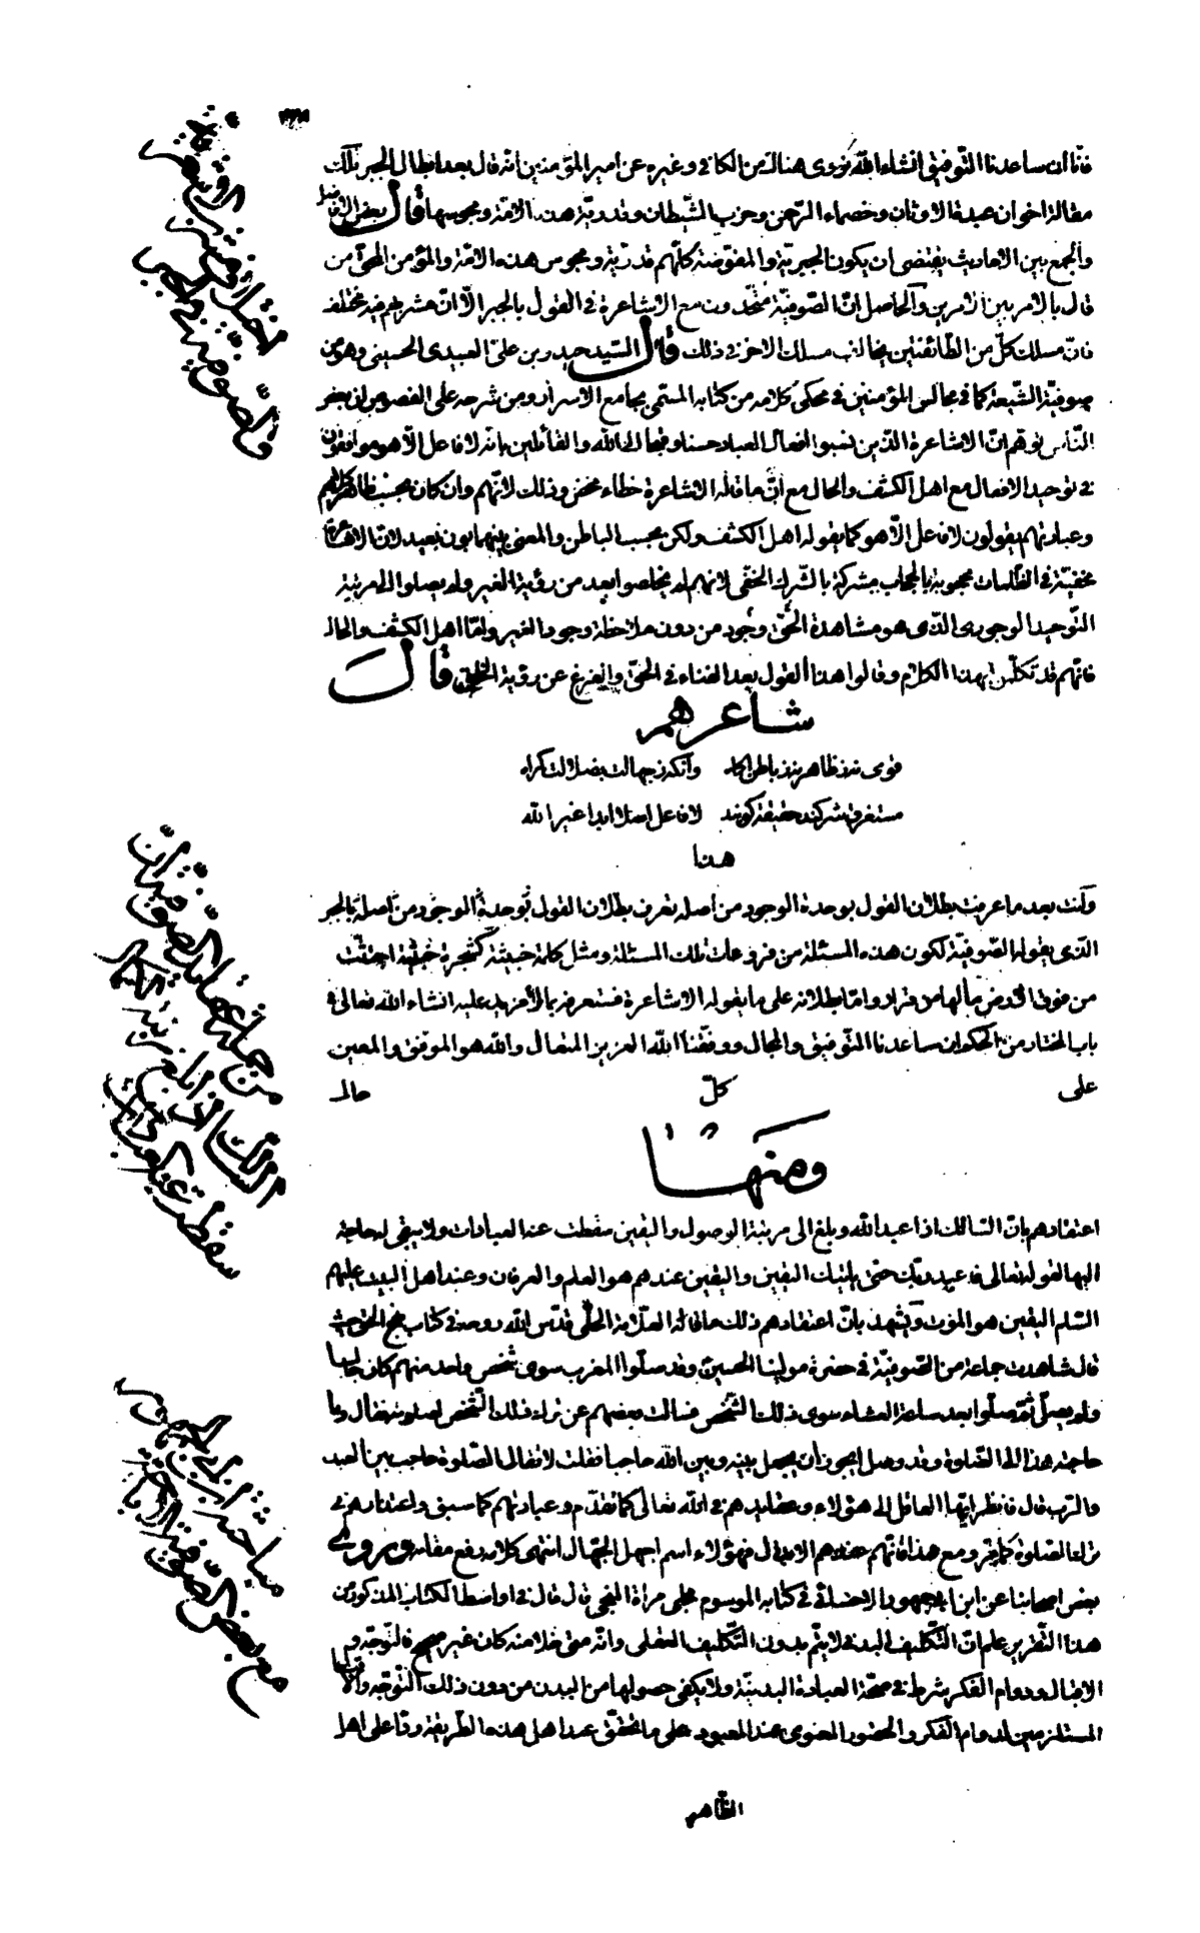 فانّا ان ساعدنا التّوفيق انشاء الله نروى هناك من الكافى و غيره عن امير المؤمنين انّه قال بعد ابطال الجبر تلك
مقالة اخوان عبدة الاوثان و خصماء الرّحمن و حزب الشّيطان و قدريّة هذه الامّة و مجوسها قال بعض الافاضل
و الجمع بين الاحاديث يقتضى ان يكون الجبريّة و المفوّضة كلّهم قدريّة و مجوس هذه الامّة و المؤمن الحقّ من
قال بالامر بين الامرين و الحاصل انّ الصّوفيّة متّحدون مع الاشاعرة فى القول بالجبر الّا انّ مشربهم فيه مختلف
فانّ مسلك كلّ من الطّائفتين يخالف مسلك الاخر فى ذلك قال السّيّد حيدر بن علىّ العبيدى الحسينى و هو من
صوفيّة الشّيعة كما فى مجالس المؤمنين فى محكىّ كلامه من كتابه المسمّى بجامع الاسرار و من شرحه على الفصوص ان بعض
النّاس توهّم انّ الاشاعرة الذّين نسبوا افعال العباد حسنا و قبحا الى الله و القائلين بانّه لا فاعل الّا هو موافقون
فى توحيد الافعال مع اهل الكشف و الحال مع انّ ما قاله الاشاعرة خطاء محض و ذلك لانّهم و ان كان بحسب ظاهر كلامهم
و عبارتهم يقولون لا فاعل الّا هو كما يقوله اهل الكشف و لكن بحسب الباطن و المعنى بينهما بون بعيد لانّ الاشاعرة
مخفيّة فى الظّلمات محجوبة بالحجاب مشركة بالشّرك الخفّى لانهم لم يخلصوا بعد من رؤية الغير و لم يصلوا الى مرتبة
التّوحيد الوجودى الذّى هو مشاهدة الحقّ وجود من دون ملاحظة وجود الغير و امّا اهل الكشف و الحال
فانّهم قد تكلّمن بهذا الكلام و قالوا هذا القول بعد الفناء فى الحقّ و الفرغ عن رؤية الخلق قال
شاعرهم
قومى نه ز ظاهر نه ز باطن اگاه وانگه ز جهالت بضلالت گمراه
مستغرق شركند حقيقت گويند لا فاعل اصلا ابدا غير الله
هذا
و انت بعد ما عرفت بطلان القول بوحدة الوجود من اصله تعرف بطلان القول بوحدة الوجود من اصله بالجبر
الذّى يقوله الصّوفيّة لكون هذه المسئلة من فروعات تلك المسئلة و مثل كلمة خبيثة كشجرة خبيثة اجتثّت
من فوق الارض ما لها من قرار و امّا بطلانه على ما يقوله الاشاعرة فستعرفه بما لا مزيد عليه انشاء الله تعالى فى
باب المختار من الحكم ان ساعدنا التّوفيق و المجال و وفّقنا الله العزيز المتعال و الله هو الموفّق و المعين
على كلّ حال
و منها
اعتقادهم بانّ السّالك اذا عبد الله و بلغ الى مرتبة الوصول و اليقين سقطت عنه العبادات و لا يبقى له حاجة
اليها لقوله تعالى فاعبد ربّك حتىّ يأتيك اليقين و اليقين عندهم هو العلم و العرفان و عند اهل البيت عليهم
السّلم اليقين هو الموت و يشهد بانّ اعتقادهم ذلك ما قاله العلّامة الحلّى قدّس الله روحه فى كتاب نهج الحق حيث
قال شاهدت جماعة من الصّوفيّة فى حضرة مولينا الحسين و قد صلّوا المغرب سوى شخص واحد منهم كان جالسا
و لم يصلّ ثمّ صلّوا بعد ساعة العشاء سوى ذلك الشّخص فسالت بعضهم عن ترك ذلك الشّخص لصلوته فقال و ما
حاجة هذا الى الصّلوة و قد وصل ايجوز ان يجعل بينه و بين الله حاجبا فقلت لا فقال الصّلوة حاجب بين العبد
و الرّب قال فانظر ايّها العاقل الى هؤلاء و عقايدهم فى الله تعالى كما تقدّم و عبادتهم كما سبق و اعتذارهم فى
ترك الصّلوة كما مرّ و مع هذا فانّهم عندهم الابدال فهؤلاء اسم اجهل الجهّال انتهى كلامه رفع مقامه و روى
بعض اصحابنا عن ابن ابى جمهور الاحسائى فى كتابه الموسوم مجلى مرآة المنجى قال قال فى اواسط الكتاب المذكور من
هذا التّقرير علم انّ التّكليف البدنى لا يتّم بدون التّكليف العقلى و انّه متى خلا منه كان غير صحيح فالتوجّه و
الاقبال و دوام الفكر شرط فى صحّة العبادة البدنيّة و لا يكفى حصولها من البدن من دون ذلك التّوجّه و الاقبال
المستلزمين لدوام الفكر و الحضور المعنوى عند المعبود على ما تحقّق عند اهل هذه الطّريقة و قاعلى اهل
الظّاهر